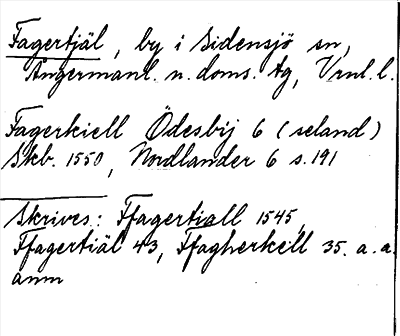 Fagertjäl, by i Sidensjö sn,
Ångermanl. n. doms. tg, Vrnl. l.
Fagerkiell Ödesbij 6 (seland)
Skb. 1550, Nordlander 6 s. 191
Skrives: Ffagertiall 1545,
Ffagertiäl 43, Ffagherkell 35. a. a.
anm